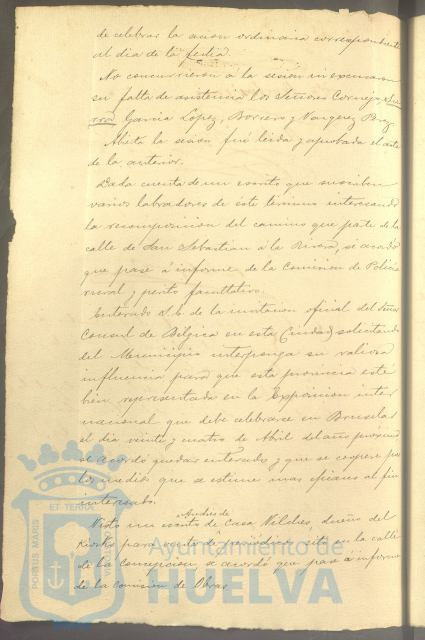 de celebrar la sesion ordinaria correspondiente
al dia de la fecha.
No concurrieron á la sesión ni excusaron
su falta de asistencia los Señores Cornejo,
García Lopez, Borrero y Vazquez Perez
Abierta la sesión fué leida y aprobada el acta
de la anterior.
Dada cuenta de un escrito que suscriben
varios labradores de este término interesando
la recomposicion del camino que parte de la
calle de San Sebastian á la Rivera, se acordó
que pase á informe de la Comision de Policia
rural y perito facultativo.
Enterado S.E. de la invitacion oficial del Señor
Consul de Bélgica en esta Ciudad, solicitando
del Municipio interponga su valiosa
influencia para que esta provincia esté
bien representada en la Exposicion inter
nacional que debe celebrarse en Bruselas
el dia veinte y cuatro de Abril del año próximo
se acordó quedar enterado y que se coopere por
los medios que se estime mas eficaces al fin
interesado.
Visto un escrito de Andres de Casa Vilches, dueño del
Kiosko para venta de periodicos sito en la calle
de la Concepcion, se acordó que pase á informe
de la Comision de Obras.
ET TERRÆ
PORTUS MARIS
CUSTODIA
Ayuntamiento de
HUELVA